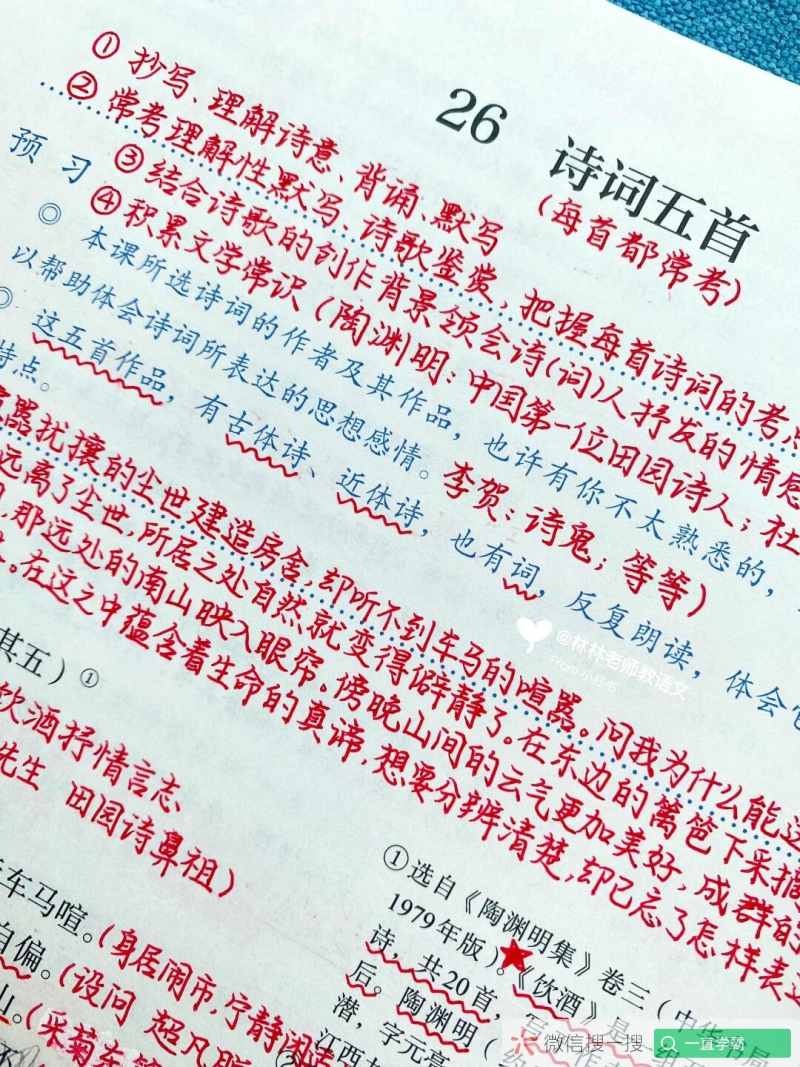 26 诗词五首
(每首都常考)
① 抄写、理解诗意、背诵、默写
② 常考理解性默写、诗歌鉴赏,把握每首诗词的考点
预习
③ 结合诗歌的创作背景领会诗(词)人抒发的情感
④ 积累文学常识(陶渊明:中国第一位田园诗人;杜
李贺:诗鬼;等等)
◎ 本课所选诗词的作者及其作品,也许有你不太熟悉的,
以帮助体会诗词所表达的思想感情。
◎ 这五首作品,有古体诗、近体诗,也有词,反复朗读,体会它
特点。
嚣扰攘的尘世建造房舍,却听不到车马的喧嚣。问我为什么能这
远离了尘世,所居之处自然就变得僻静了。在东边的篱笆下采摘
,那远处的南山映入眼帘。傍晚山间的云气更加美好,成群的
。在这之中蕴含着生命的真谛,想要分辨清楚,却已忘了怎样表达
其五)①
饮酒抒情言志
先生 田园诗鼻祖)
车马喧。(身居闹市,宁静闲适
自偏。(设问 超凡脱
山。(采菊东篱
①选自《陶渊明集》卷三(中华书局
1979年版)。《饮酒》是一组五
诗,共20首,写
后。陶渊明(
潜,字元亮
江西九
@林林老师教语文
From 小红书
微信搜一搜
一直学霸